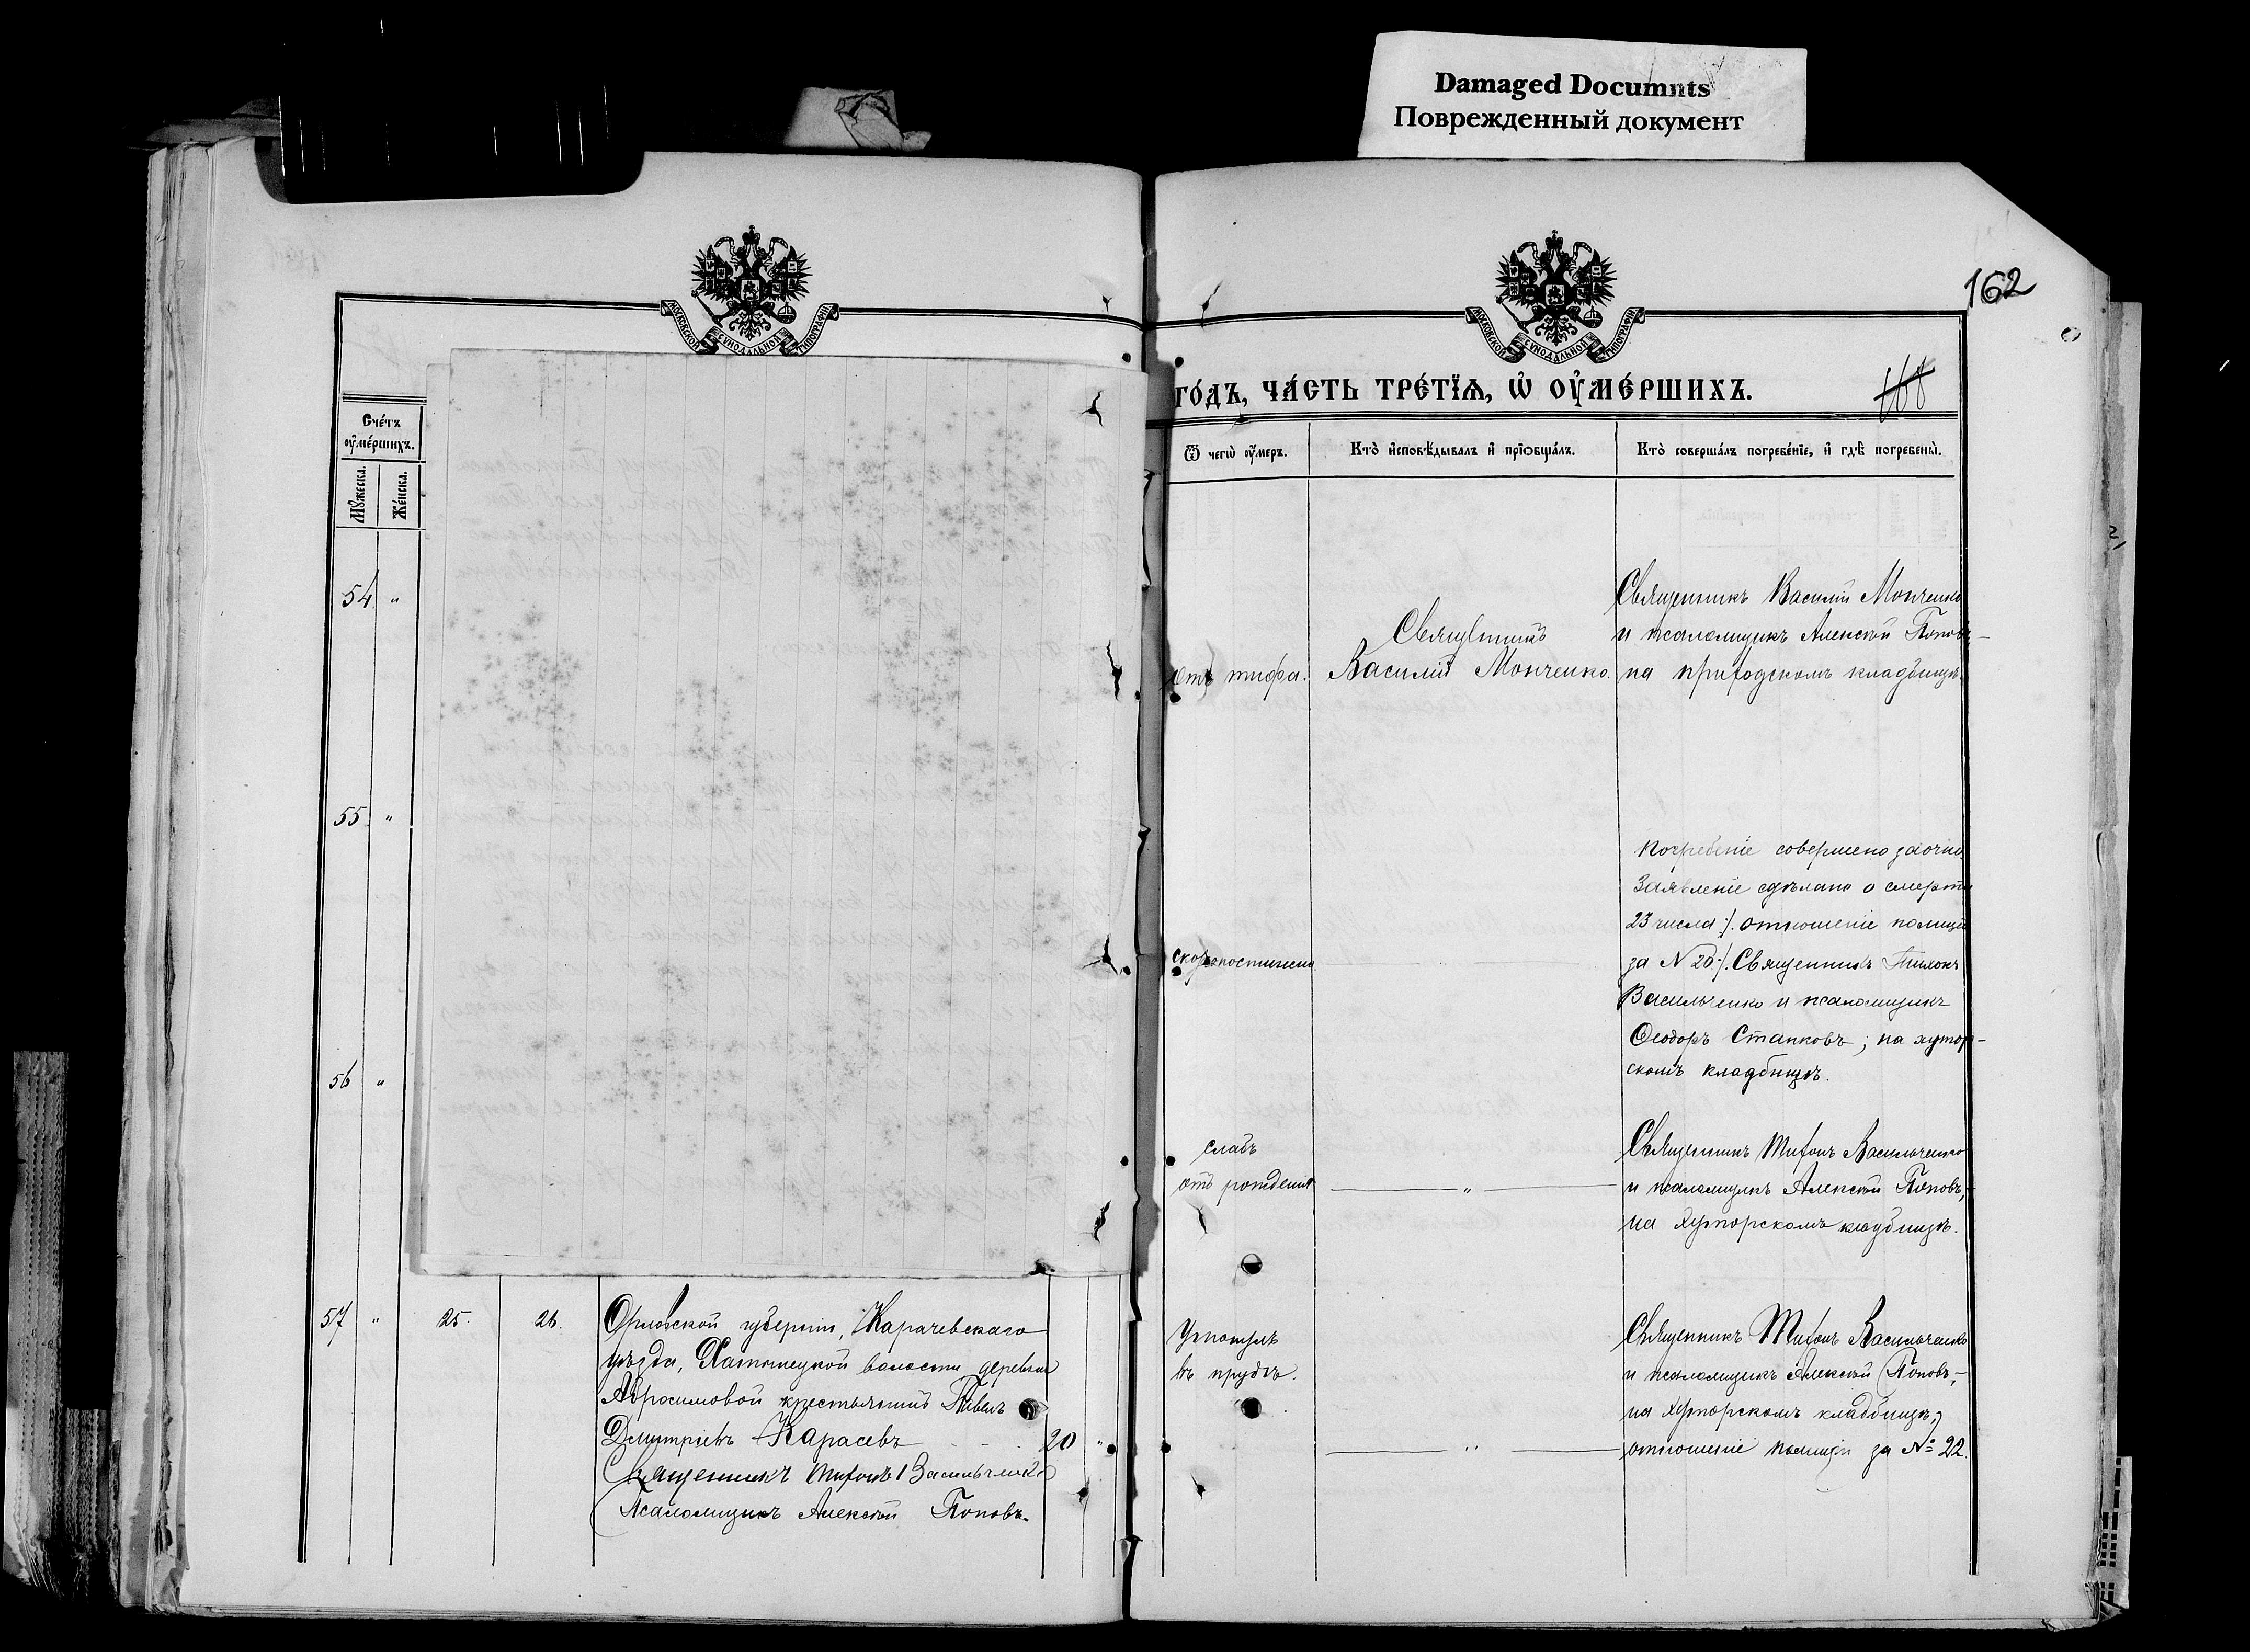 Damaged Documnts
Поврежденный документ
162
МОСКОВСКОЙ СУНОДАЛЬНОЙ ТИПОГРАФІИ
МОСКОВСКОЙ СУНОДАЛЬНОЙ ТИПОГРАФІИ
го́дъ, ча́сть тре́тїѧ, ѡ҆ ᲂу҆ме́ршихъ.
168
Сче́тъ
ᲂу҆ме́ршихъ.
Мꙋ́жеска.
Же́нска.
Ѿ чегѡ̀ ᲂу҆́меръ.
Кто̀ и҆сповѣ́дывалъ и҆ прїѻбща́лъ.
Кто̀ соверша́лъ погребе́нїе, и҆ гдѣ̀ погребены̀.
54 "
отъ тифа.
Священникъ
Василій Монченко.
Священникъ Василій Монченко
и псаломщикъ Алексѣй Поповъ,–
на приходскомъ кладбищѣ.
55 "
скоропостижно
погребеніе совершено заочно.
Заявленіе сдѣлано о смерти
23 числа /. отношеніе полиціи
за N 20./. Священникъ Тихонъ
Васильченко и псаломщикъ
Ѳеодоръ Станковъ; на хутор-
скомъ кладбищѣ.
56 "
слабъ
отъ рожденія
"
Священникъ Тихонъ Васильченко
и псаломщикъ Алексѣй Поповъ,–
на хуторскомъ кладбищѣ.
57 " 25. 26.
Орловской губерніи, Карачевскаго
уѣзда, волости деревни
Абросимовой крестьянинъ Павелъ
Дмитріевъ Карасевъ 20 "
Священникъ Тихонъ Васильченко
Псаломщикъ Алексѣй Поповъ.
Утонулъ
въ прудѣ.
"
Священникъ Тихонъ Васильченко
и псаломщикъ Алексѣй Поповъ,–
на хуторскомъ кладбищѣ,
отношеніе полиціи за № 22.